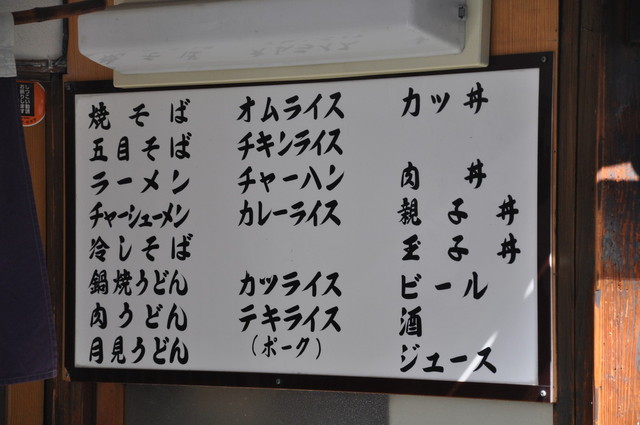 焼そば
五目そば
ラーメン
チャーシューメン
冷しそば
鍋焼うどん
肉うどん
月見うどん
オムライス
チキンライス
チャーハン
カレーライス
カツライス
テキライス
(ポーク)
カツ丼
肉丼
親子丼
玉子丼
ビール
酒
ジュース